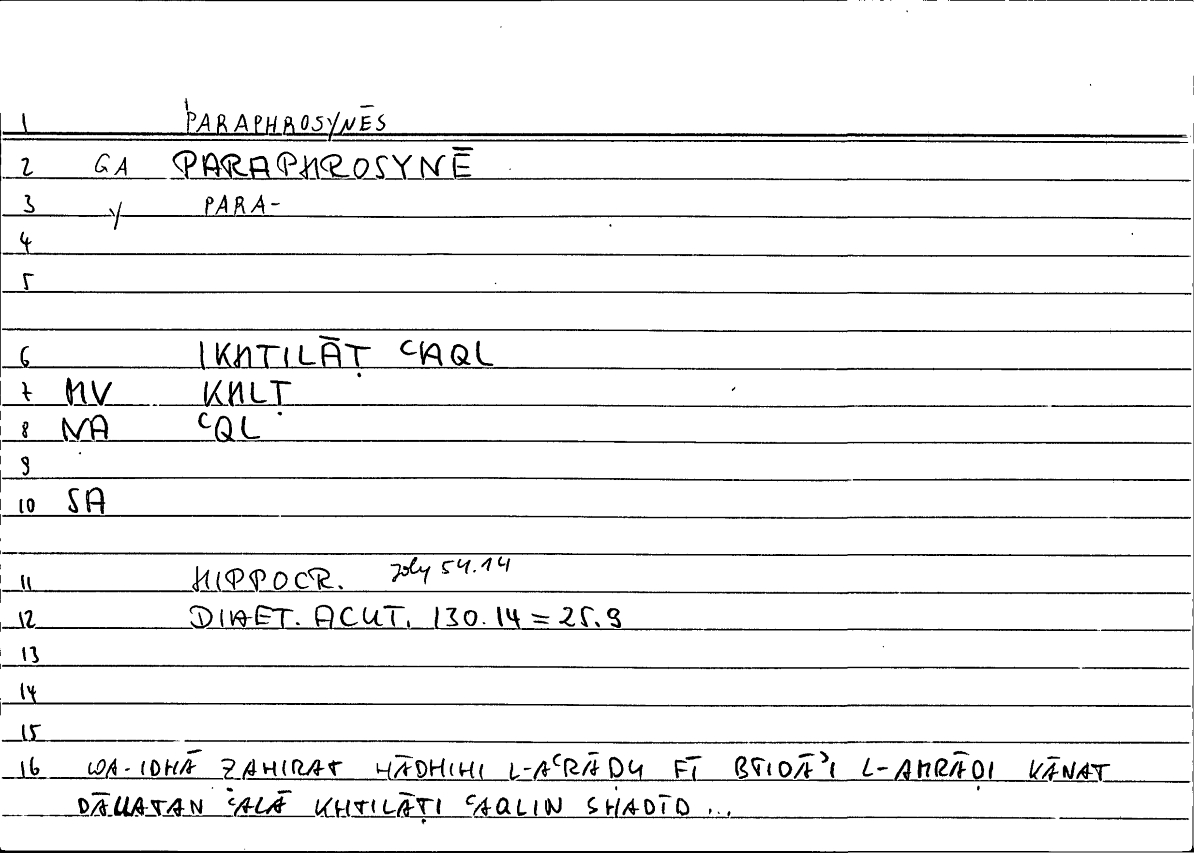 1 PARAPHROSYNĒS
2 GA PARAPHROSYNĒ
3 Y PARA-
4
5
6 IKHTILĀṬ ʿAQL
7 MV KHLṬ
8 NA ʿQL
9
10 SA
11 HIPPOCR. Joly 54.14
12 DIAET. ACUT. 130.14 = 25.9
13
14
15
16 WA-IDHĀ ẒAHIRAT HĀDHIHI L-AʿRĀḌU FĪ BTIDĀʾI L-AMRĀḌI KĀNAT
DĀLLATAN ʿALĀ KHTILĀṬI ʿAQLIN SHADĪD ...